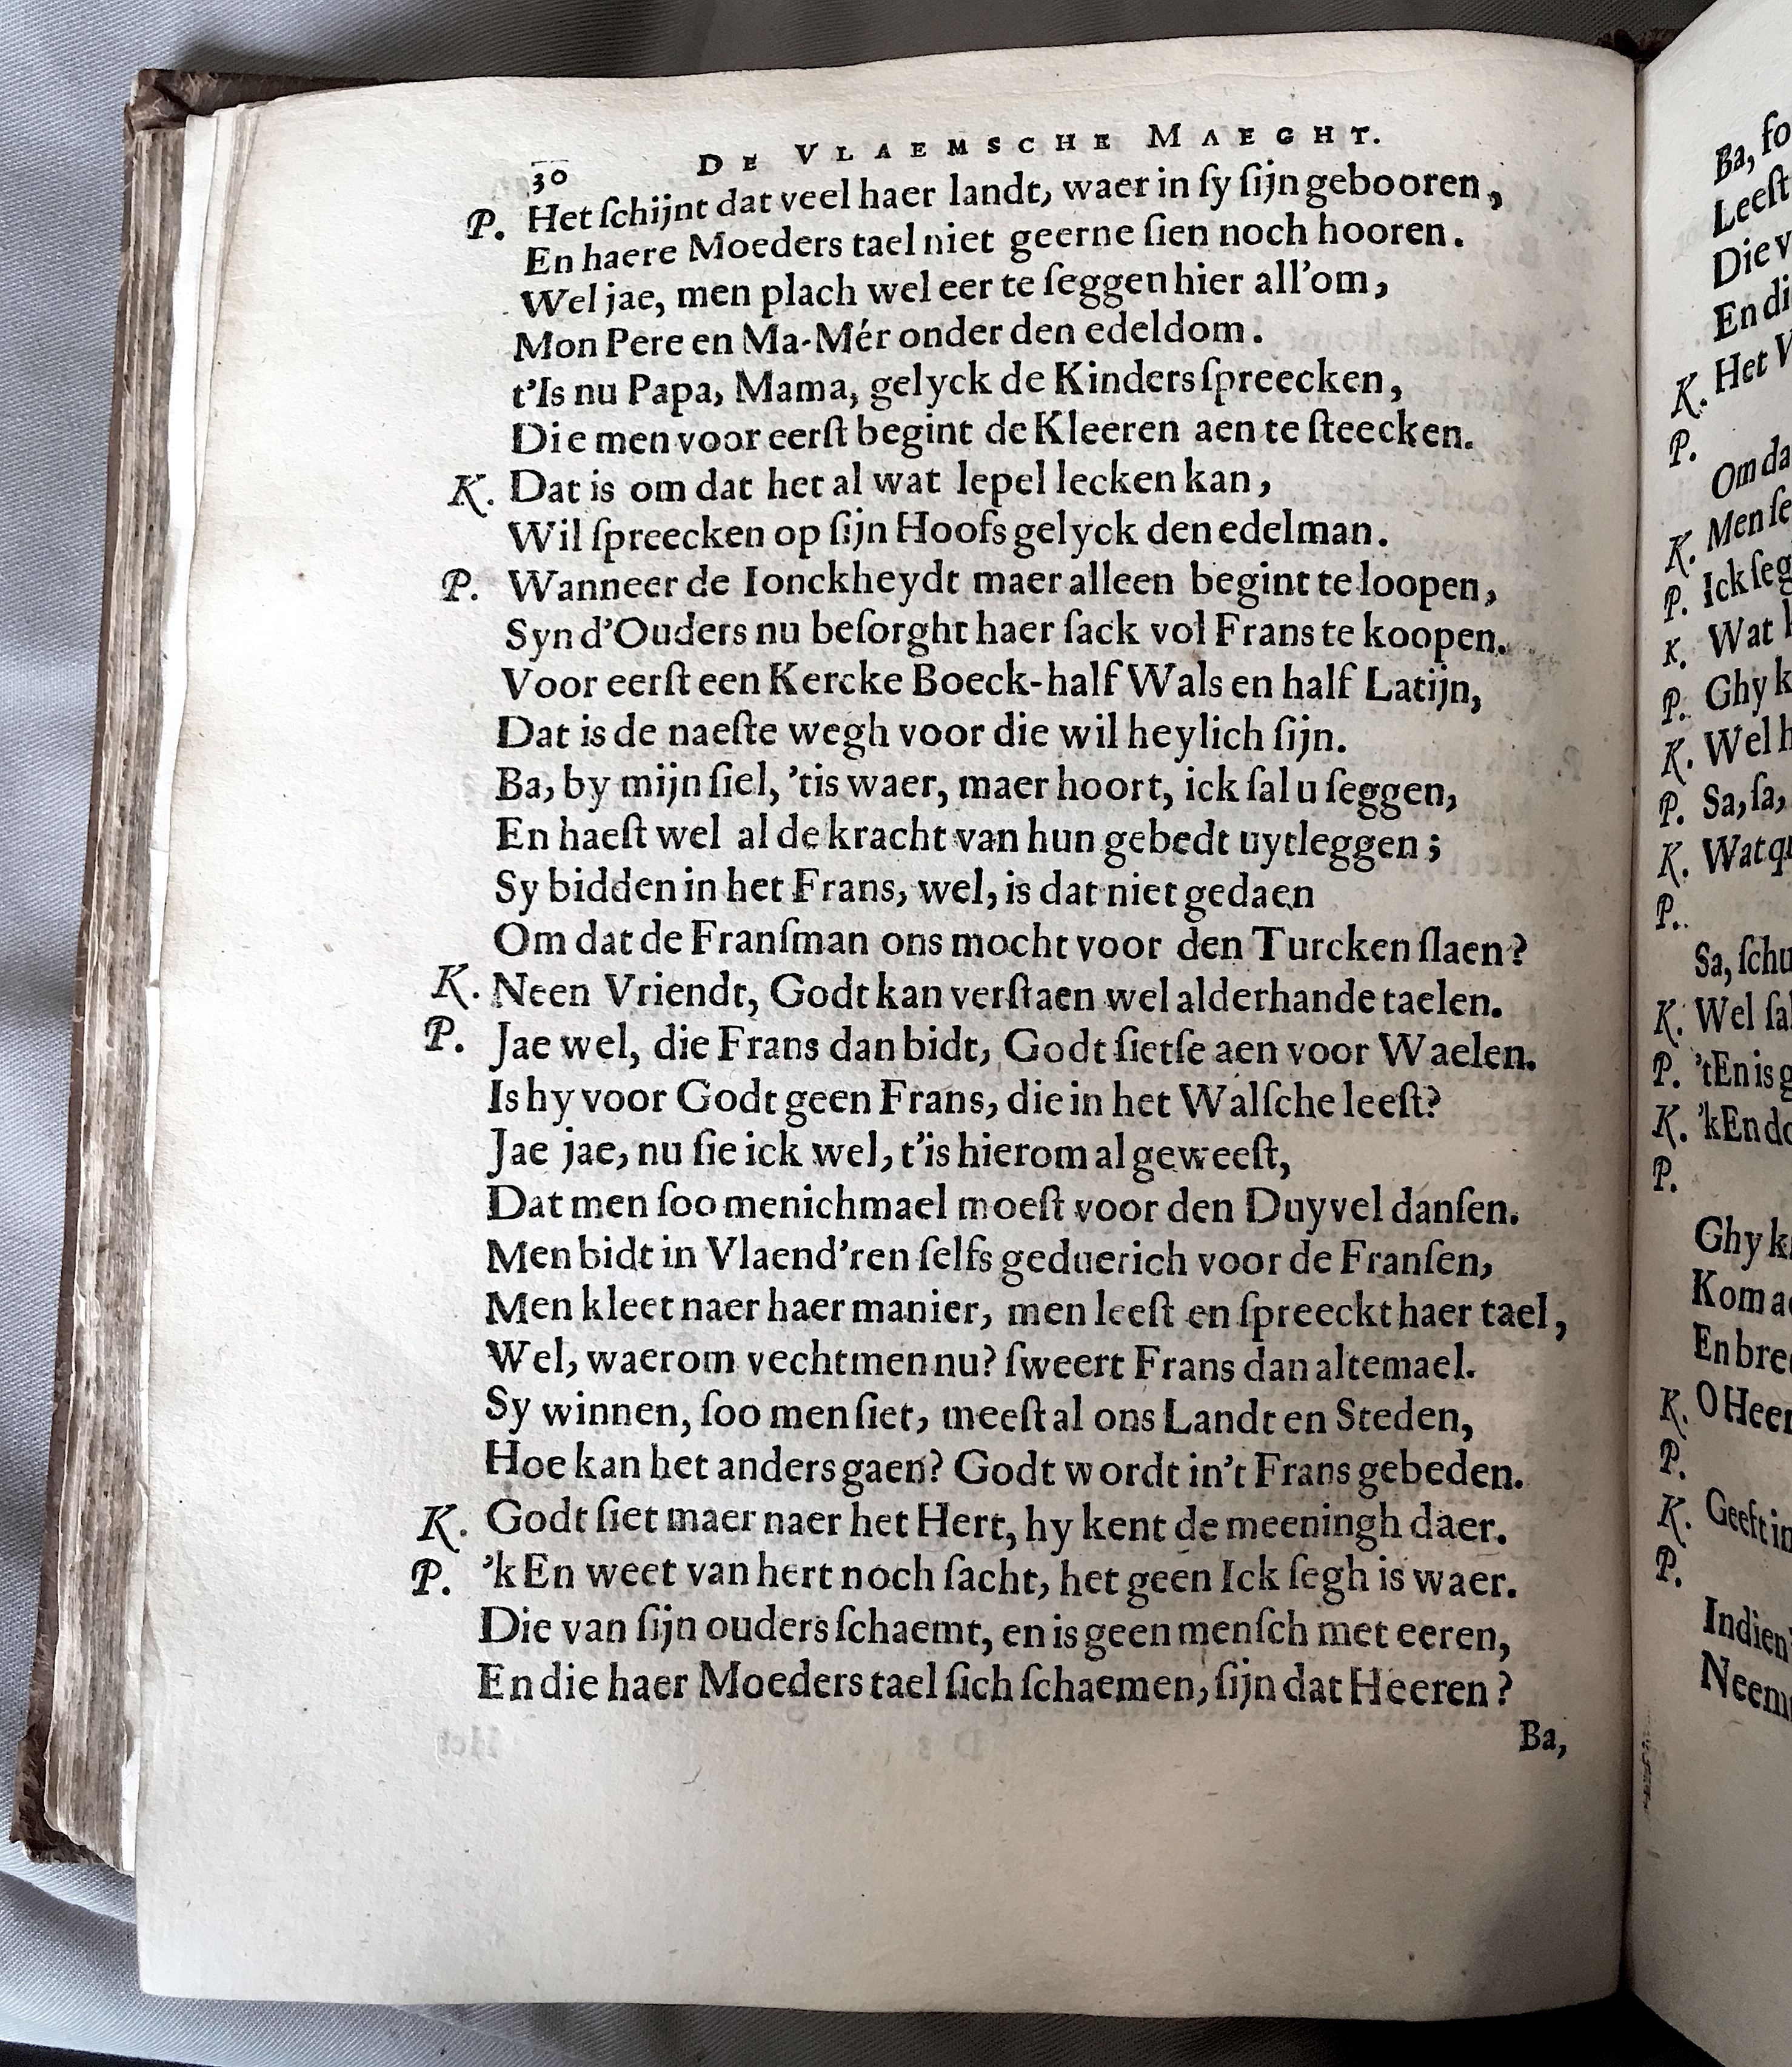 30 DE VLAEMSCHE MAEGHT.
P. Het ſchijnt dat veel haer landt, waer in ſy ſijn gebooren,
En haere Moeders tael niet geerne ſien noch hooren.
Wel jae, men plach wel eer te ſeggen hier all'om,
Mon Pere en Ma-Mér onder den edeldom.
t'Is nu Papa, Mama, gelyck de Kinders ſpreecken,
Die men voor eerſt begint de Kleeren aen te ſteecken.
K. Dat is om dat het al wat lepel lecken kan,
Wil ſpreecken op ſijn Hoofs gelyck den edelman.
P. Wanneer de Ionckheydt maer alleen begint te loopen,
Syn d'Ouders nu beſorght haer ſack vol Frans te koopen.
Voor eerſt een Kercke Boeck-half Wals en half Latijn,
Dat is de naeſte wegh voor die wil heylich ſijn.
Ba, by mijn ſiel, 'tis waer, maer hoort, ick ſal u ſeggen,
En haeſt wel al de kracht van hun gebedt uytleggen;
Sy bidden in het Frans, wel, is dat niet gedaen
Om dat de Franſman ons mocht voor den Turcken ſlaen?
K. Neen Vriendt, Godt kan verſtaen wel alderhande taelen.
P. Jae wel, die Frans dan bidt, Godt ſietſe aen voor Waelen.
Is hy voor Godt geen Frans, die in het Walſche leeſt?
Jae jae, nu ſie ick wel, t'is hierom al geweeſt,
Dat men ſoo menichmael moeſt voor den Duyvel danſen.
Men bidt in Vlaend'ren ſelfs geduerich voor de Franſen,
Men kleet naer haer manier, men leeſt en ſpreeckt haer tael,
Wel, waerom vechtmen nu? ſweert Frans dan altemael.
Sy winnen, ſoo men ſiet, meeſt al ons Landt en Steden,
Hoe kan het anders gaen? Godt wordt in't Frans gebeden.
K. Godt ſiet maer naer het Hert, hy kent de meeningh daer.
P. 'k En weet van hert noch ſacht, het geen Ick ſegh is waer.
Die van ſijn ouders ſchaemt, en is geen menſch met eeren,
En die haer Moeders tael ſich ſchaemen, ſijn dat Heeren?
Ba,
Ba, ſo
Leeſt
Die v
En di
K. Het V
P.
Om da
K. Men ſe
P. Ick ſeg
K. Wat
P. Ghy k
K. Wel h
P. Sa, ſa,
K. Wat qu
P.
Sa, ſchu
K. Wel ſa
P. 'tEn is g
K. 'kEn do
P.
Ghy k
Kom a
En bre
K. O Heer
P.
K. Geeft in
P.
Indien
Neem